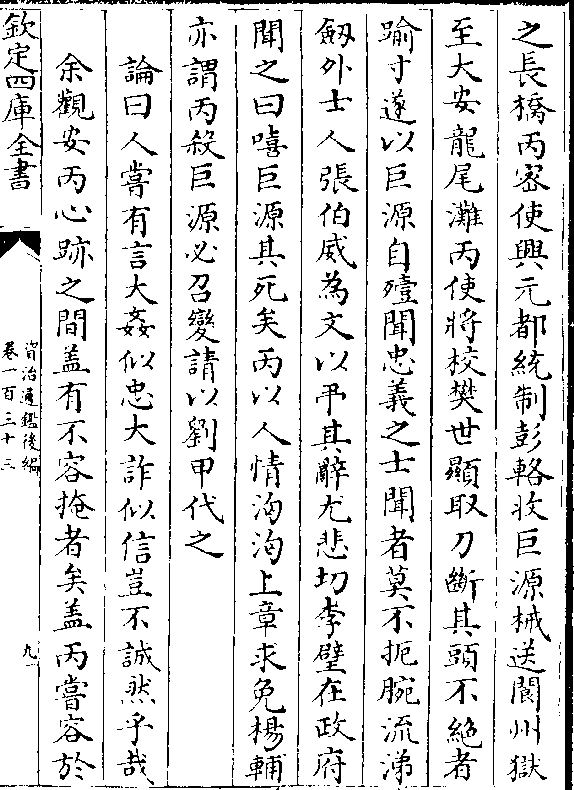 之長橋丙宻使興元都統制彭輅收巨源械送閬州獄
至大安龍尾灘丙使將校樊世顯取刀斷其頭不絶者
踰寸遂以巨源自殪聞忠義之士聞者莫不扼腕流涕
劔外士人張伯威為文以弔其辭尤悲切李壁在政府
聞之曰嘻巨源其死矣丙以人情洶洶上章求免楊輔
亦謂丙殺巨源必召變請以劉甲代之
論曰人嘗有言大姦似忠大詐似信豈不誠然乎哉
余觀安丙心跡之間盖有不容掩者矣盖丙嘗容於
欽定四庫全書
資治通鑑後編
卷一百三十三
九